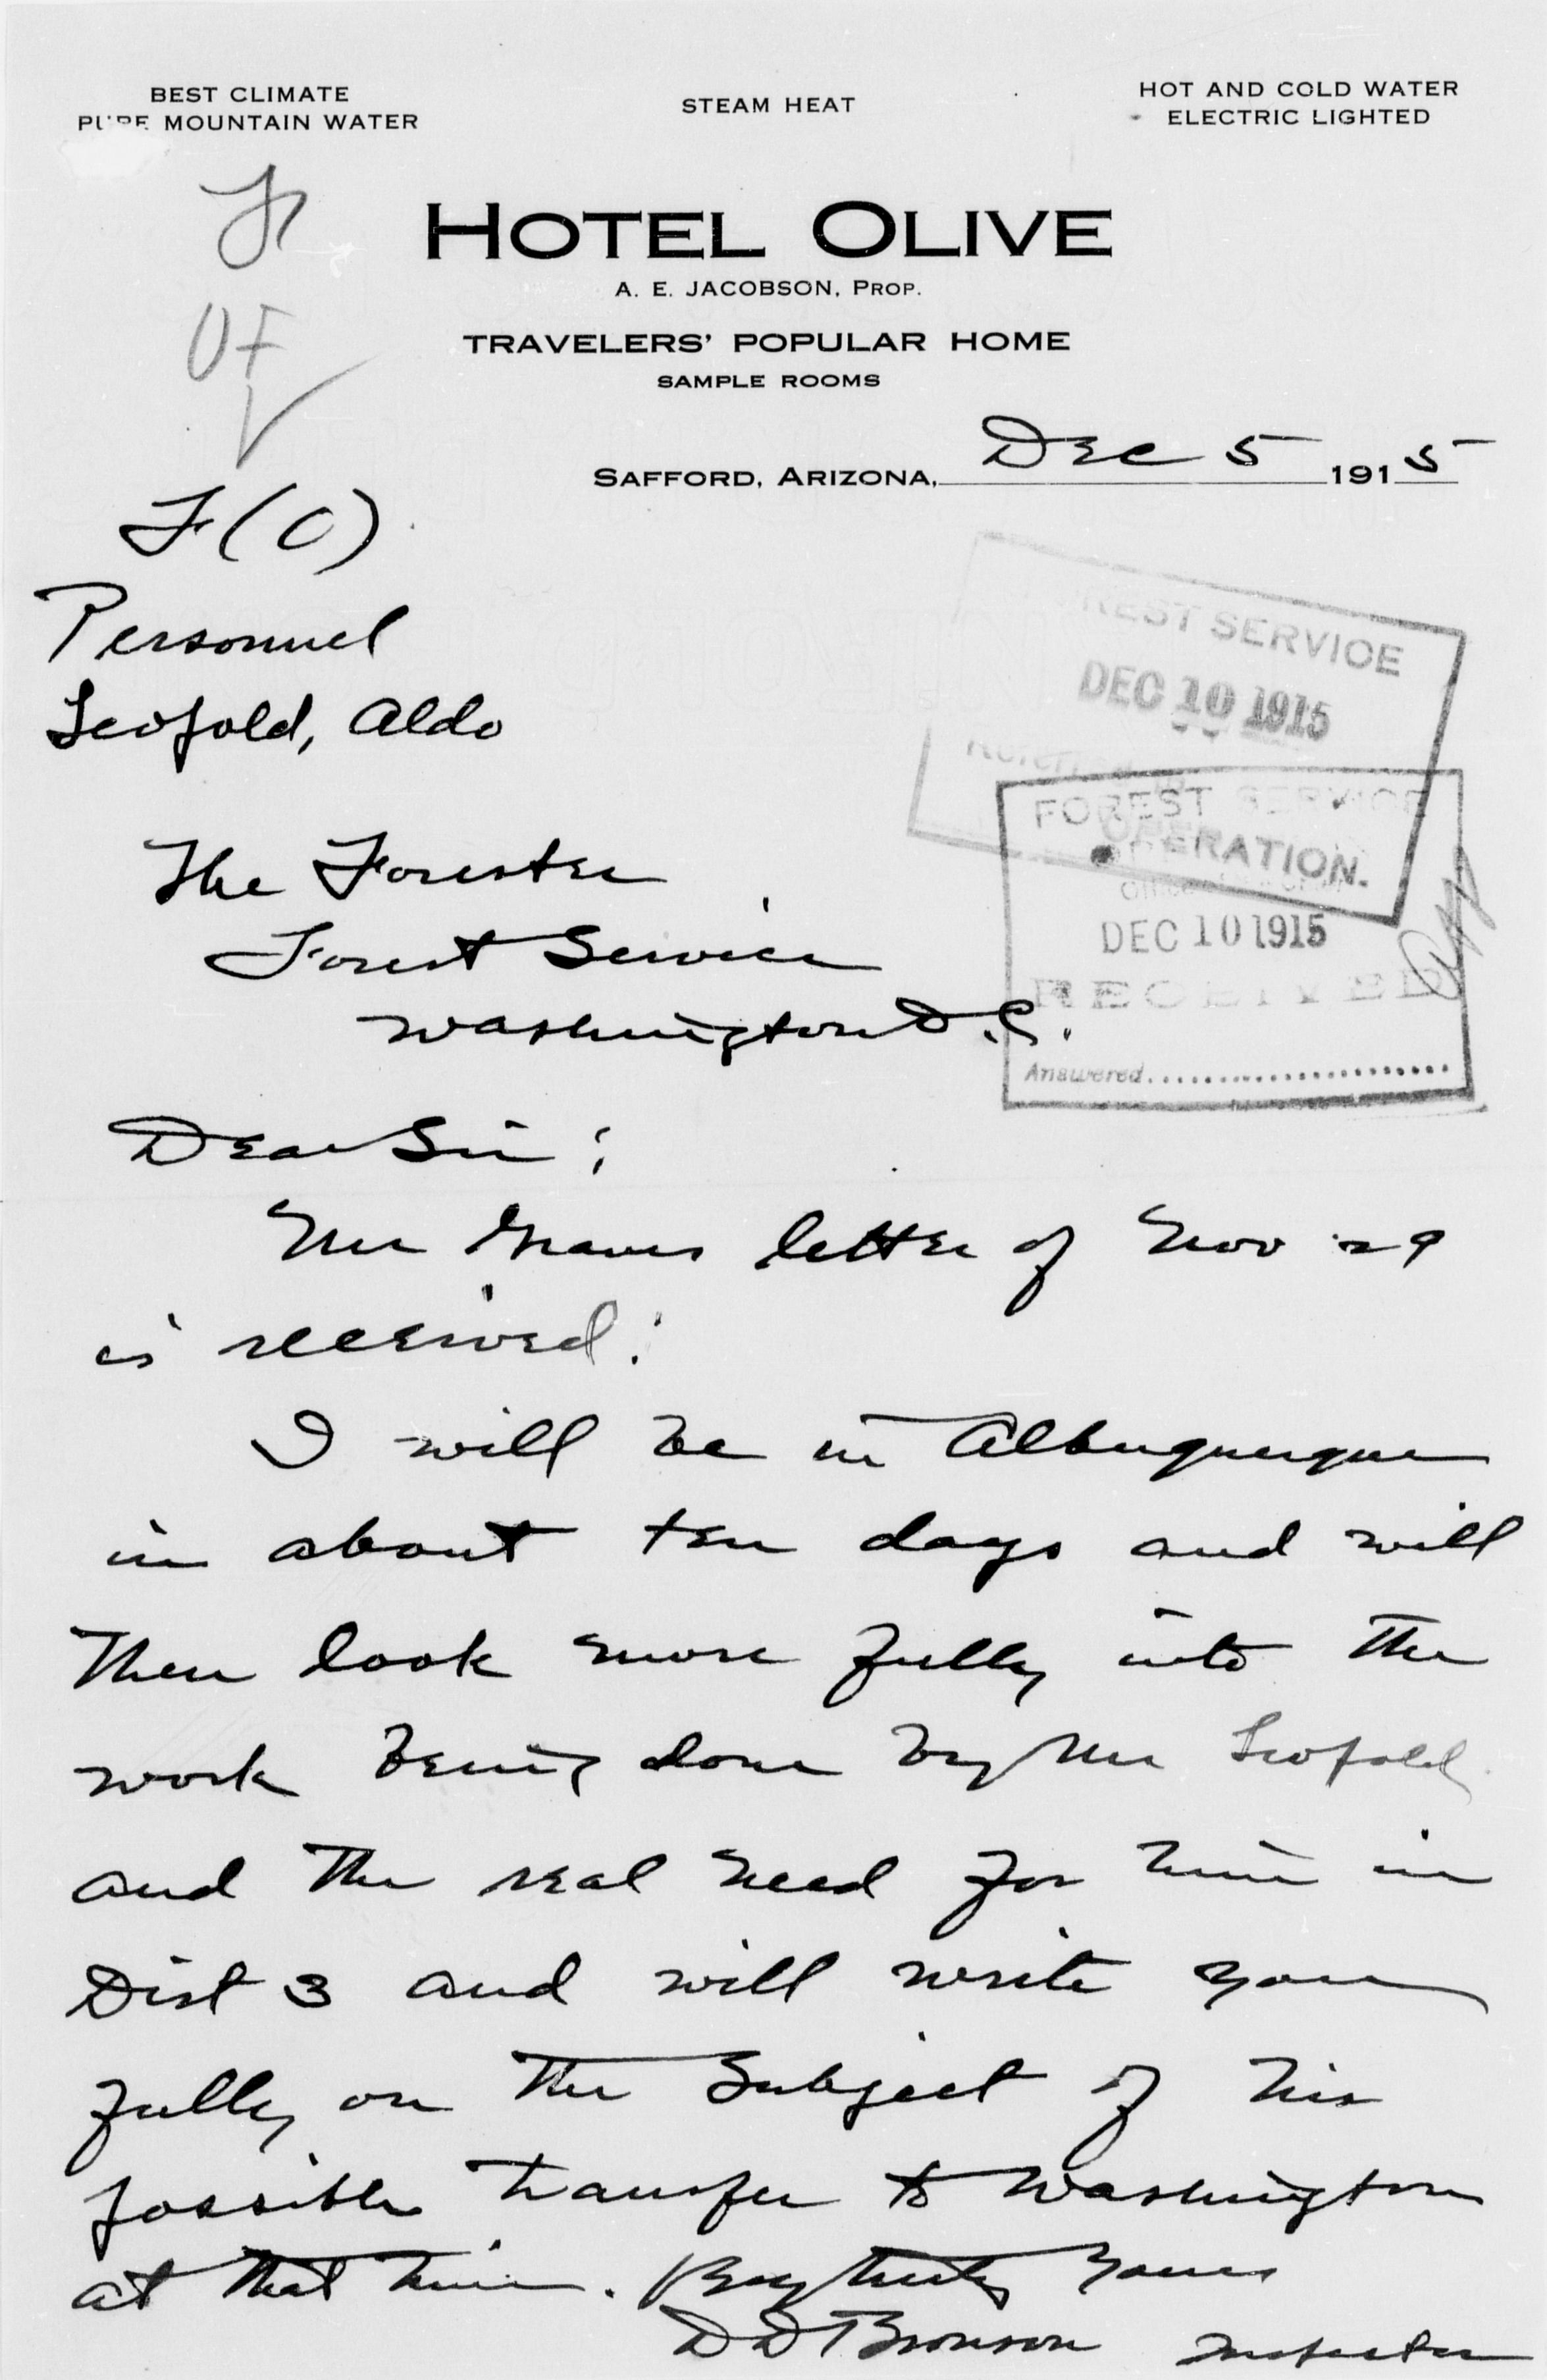 BEST CLIMATE
PURE MOUNTAIN WATER
STEAM HEAT
HOT AND COLD WATER
ELECTRIC LIGHTED
HOTEL OLIVE
A. E. JACOBSON, PROP.
TRAVELERS' POPULAR HOME
SAMPLE ROOMS
OF
SAFFORD, ARIZONA, Dec 5 1915
F(C)
Personnel
Leopold, Aldo
FOREST SERVICE
DEC 10 1915
Referred to
OPERATION.
FOREST SERVICE
DEC 10 1915
RECEIVED
Answered
The Forester
Forest Service
Washington D.C.
Dear Sir:
Mr Graves letter of Nov 29
is received.
I will be in Albuquerque
in about ten days and will
then look more fully into the
work being done by Mr Leopold
and the real need for him in
Dist 3 and will write you
fully on the subject of his
possible transfer to Washington
at that time. Very truly yours
D D Bronson Inspector